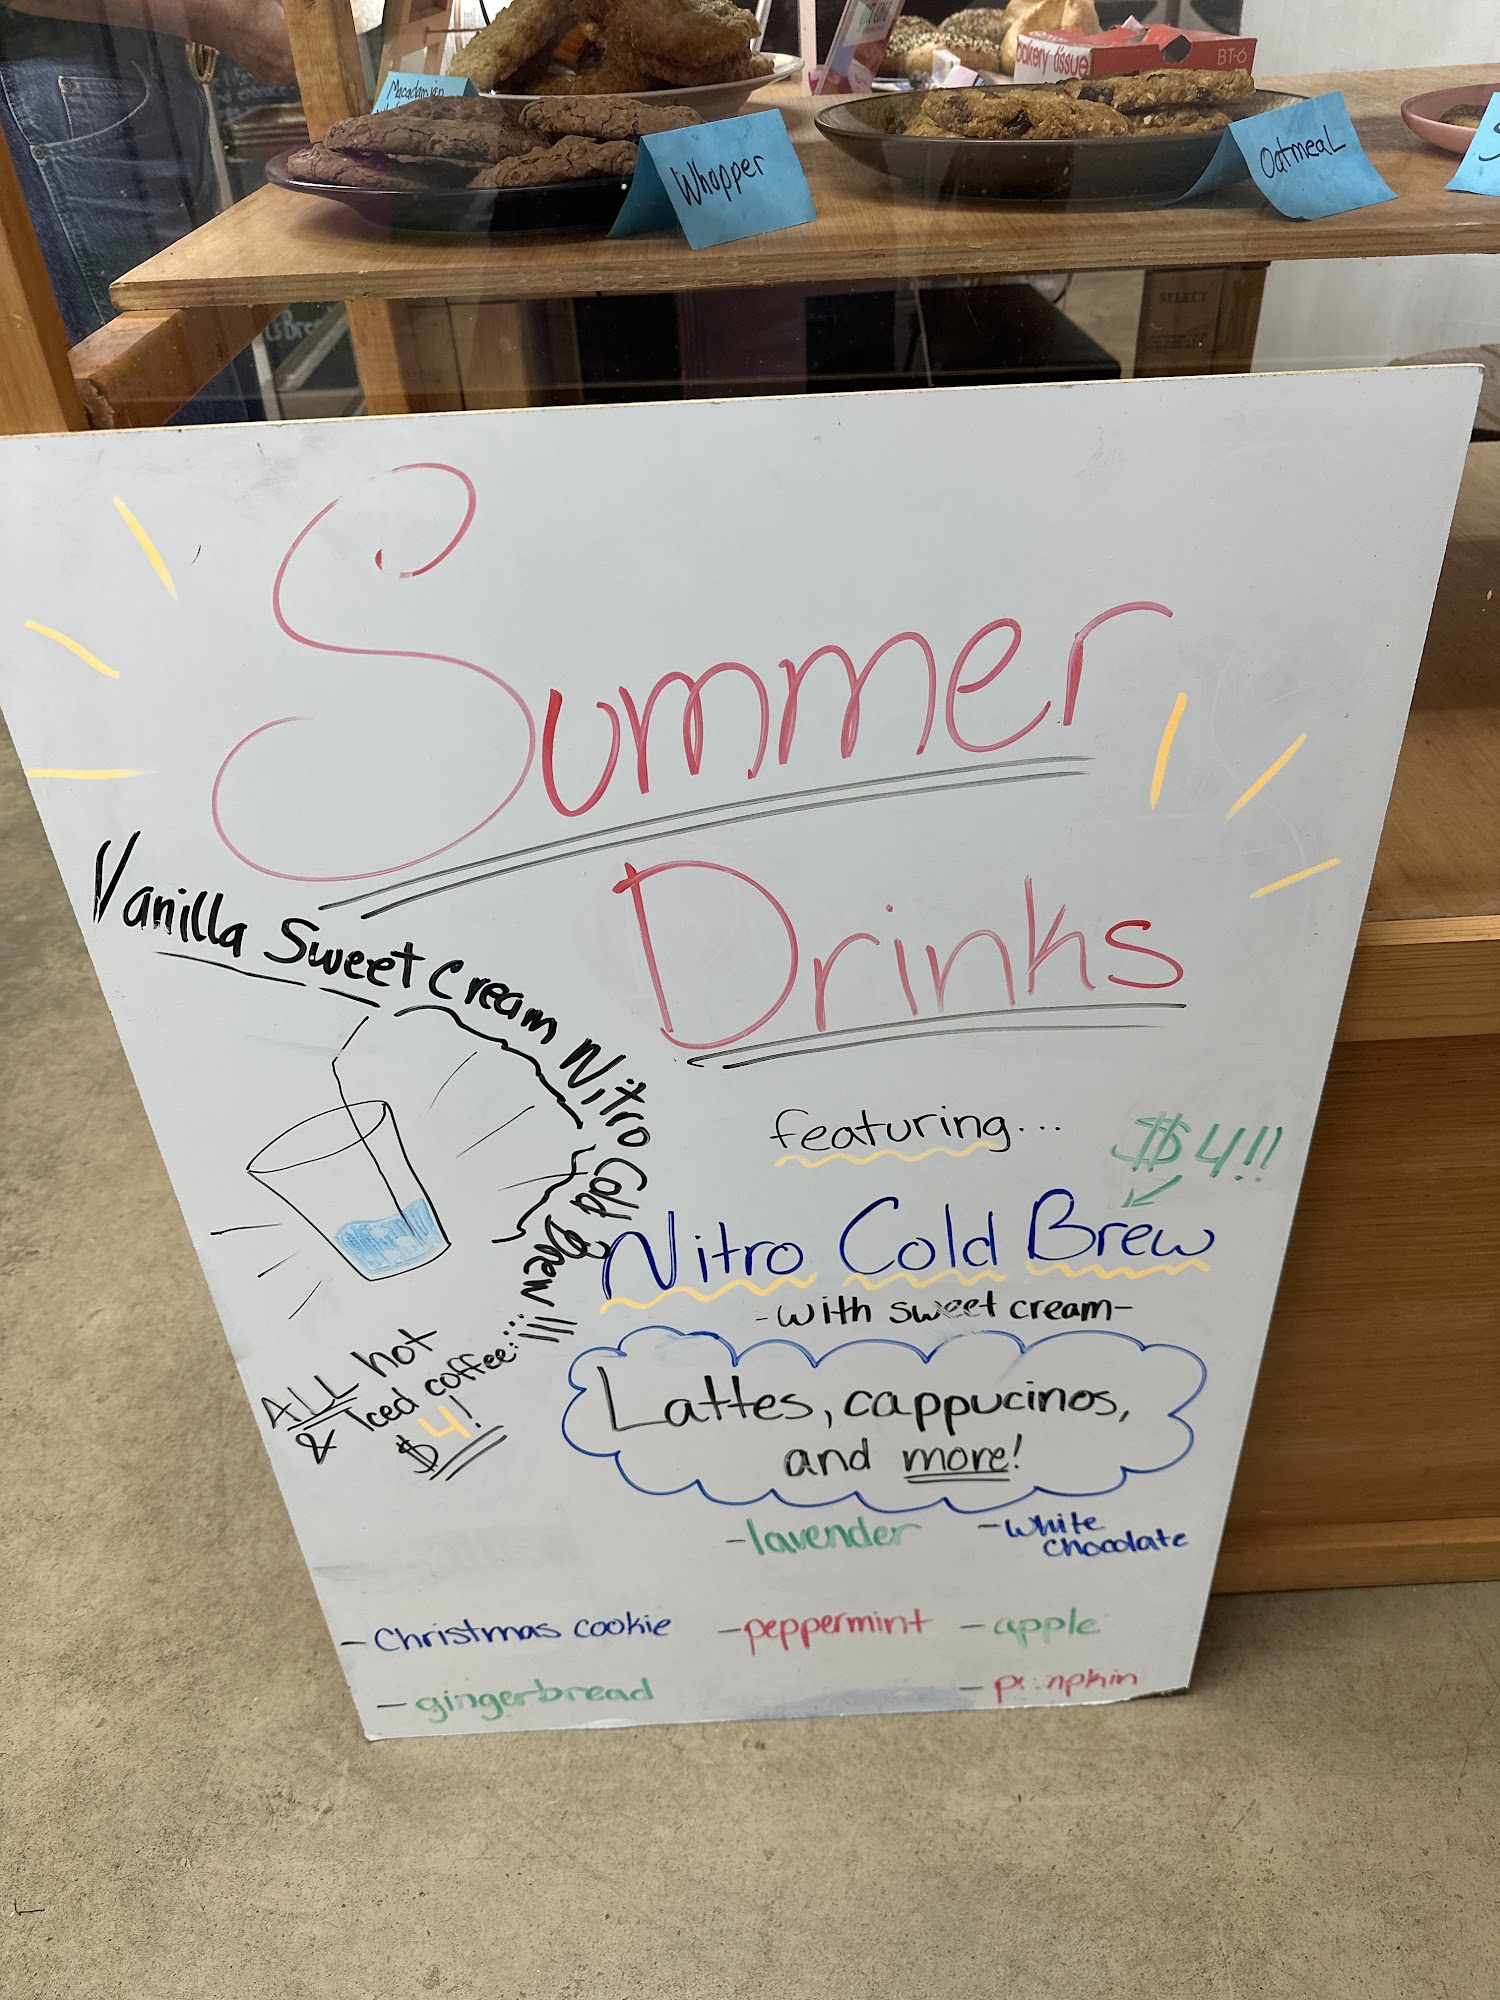 bakery tissue
BT-6
Macadamian
Whopper
Oatmeal
SELECT
Summer
Drinks
Vanilla Sweet Cream Nitro Cold Brew!!!
featuring...
$4!!
Nitro Cold Brew
-with sweet cream-
ALL hot
& Iced coffee:...
$4!
Lattes, cappucinos,
and more!
-lavender
-white
chocolate
-Christmas cookie
-peppermint
-apple
-gingerbread
-pumpkin